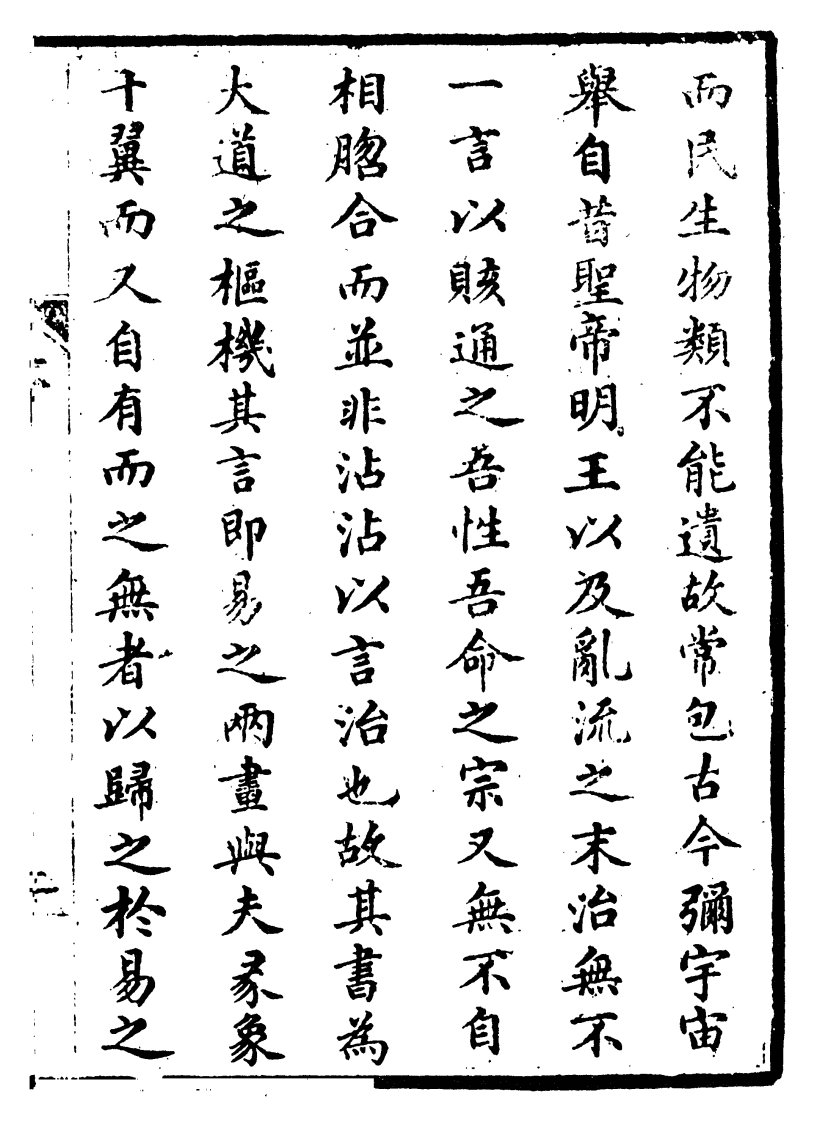 而民生物類不能遺故常包古今彌宇宙
舉自昔聖帝明王以及亂流之末治無不
一言以賅通之吾性吾命之宗又無不自
相脗合而並非沾沾以言治也故其書為
大道之樞機其言即易之兩畫與夫彖象
十翼而又自有而之無者以歸之於易之